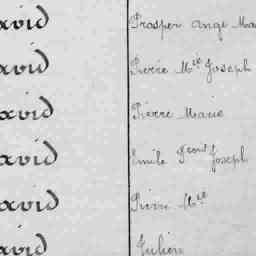 avid Prosper Ange Ma
avid Pierre Mie Joseph
avid Pierre Marie
avid Emile Joseph
avid Pierre Mie
avid Julien